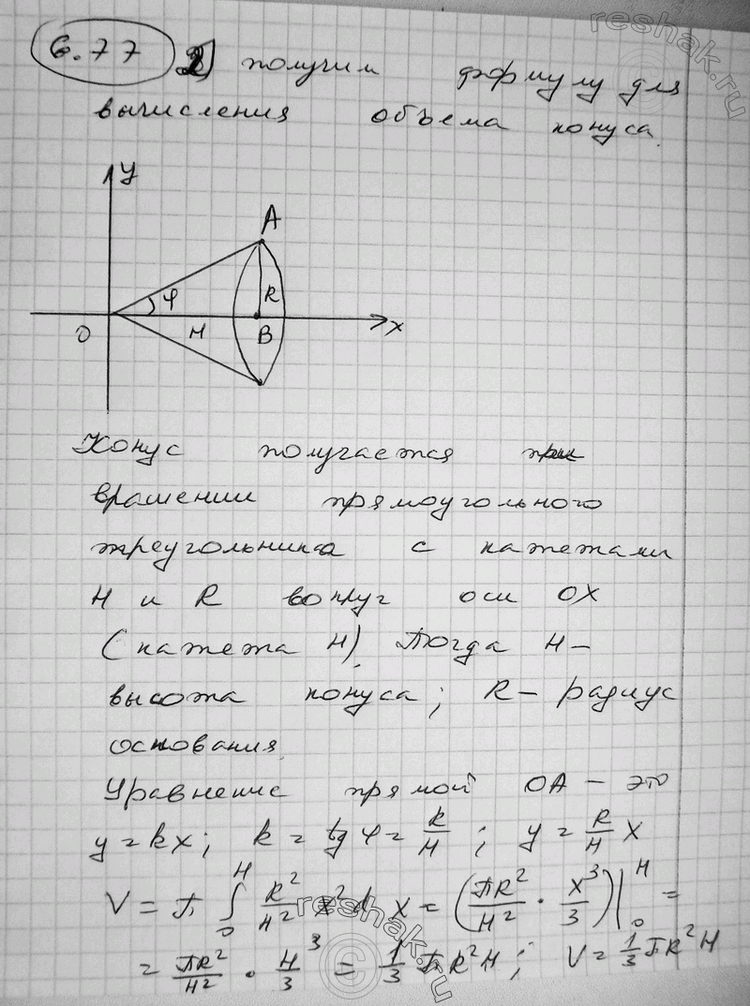 6.77 2) получим формулу для
вычисления объема конуса.
y
A
φ
R
O
H
B
x
Конус получается при
вращении прямоугольного
треугольника с катетами
H и R вокруг оси OX
(катета H). Тогда H –
высота конуса; R – радиус
основания.
Уравнение прямой OA – это
y = kx; k = tg φ = R/H; y = R/H x
V = π ∫₀ᴴ R²/H² x² dx = (πR²/H² · x³/3)|₀ᴴ =
= πR²/H² · H³/3 = 1/3 πR²H; V = 1/3 πR²H
reshak.ru
reshak.ru
reshak.ru